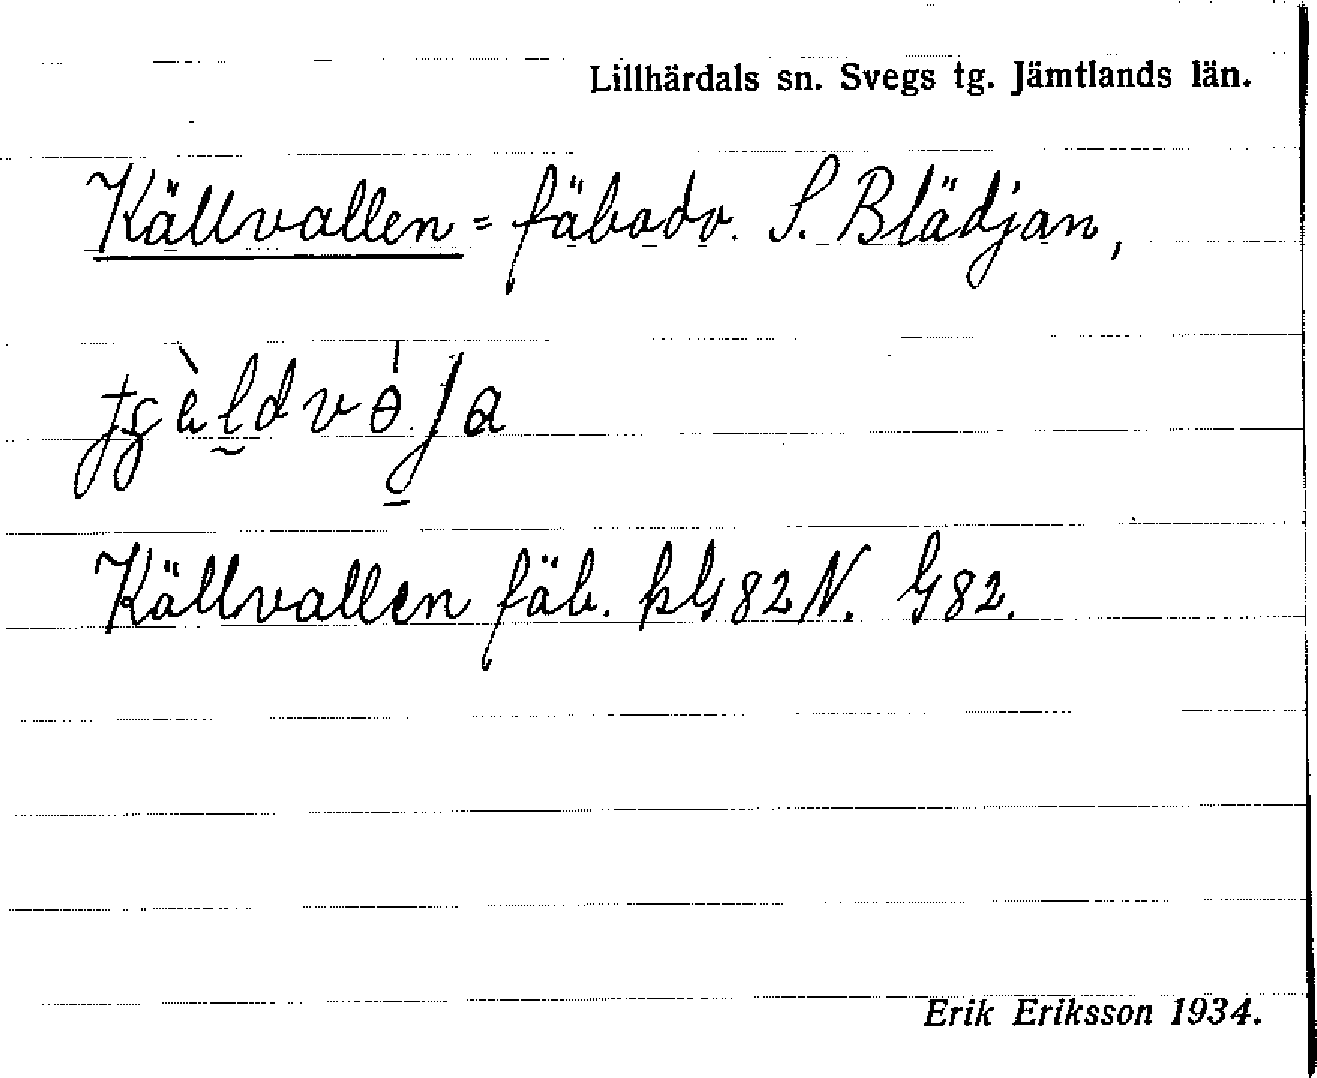 Lillhärdals sn. Svegs tg. Jämtlands län.
Källvallen = fäbodv. S. Blädjan,
Källvallen fäb. kG82N. G82.
Erik Eriksson 1934.